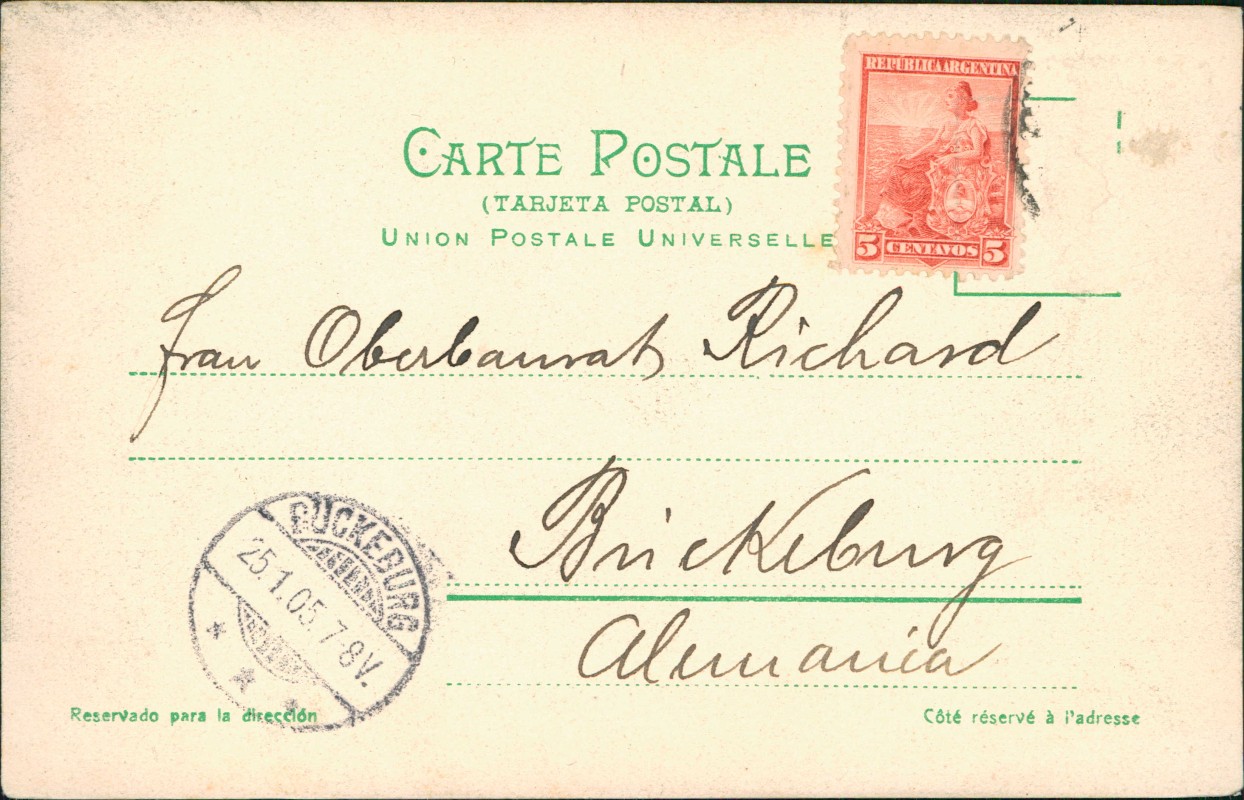 REPÚBLICA ARGENTINA
CARTE POSTALE
(TARJETA POSTAL)
UNION POSTALE UNIVERSELLE
5 CENTAVOS 5
Frau Oberbaurat Richard
Bückeburg
Alemania
BÜCKEBURG
25.1.05. 7-8V.
Reservado para la dirección
Côté réservé à l'adresse